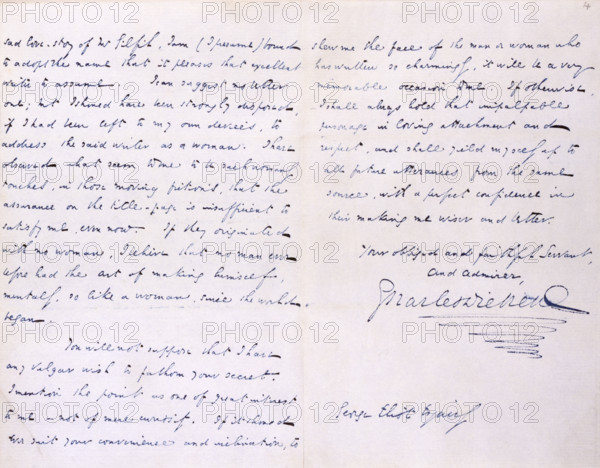 sad love-story of Mr Gilfil, I am (I presume) bound
to adopt the name that it pleases that excellent
writer to assume. I can suggest no better
one; but I should have been strongly disposed,
if I had been left to my own devices, to
address the said writer as a woman. I have
observed what seem to me to be such womanly
touches, in those moving fictions, that the
assurance on the title-page is insufficient to
satisfy me, even now. If they originated
with no woman, I believe that no man ever
before had the art of making himself,
mentally, so like a woman, since the world
began.
You will not suppose that I have
any vulgar wish to fathom your secret.
I mention the point as one of great interest
to me – not of mere curiosity. If it should
ever suit your convenience and inclination, to
4
shew me the face of the man or woman who
has written so charmingly, it will be a very
memorable occasion to me. If otherwise,
I shall always hold that impalpable
personage in loving attachment and
respect, and shall yield myself up to
all future utterances from the same
source, with a perfect confidence in
their making me wiser and better.
Your obliged and faithful Servant,
and admirer,
Charles Dickens
George Eliot Esquire
PHOTO 12